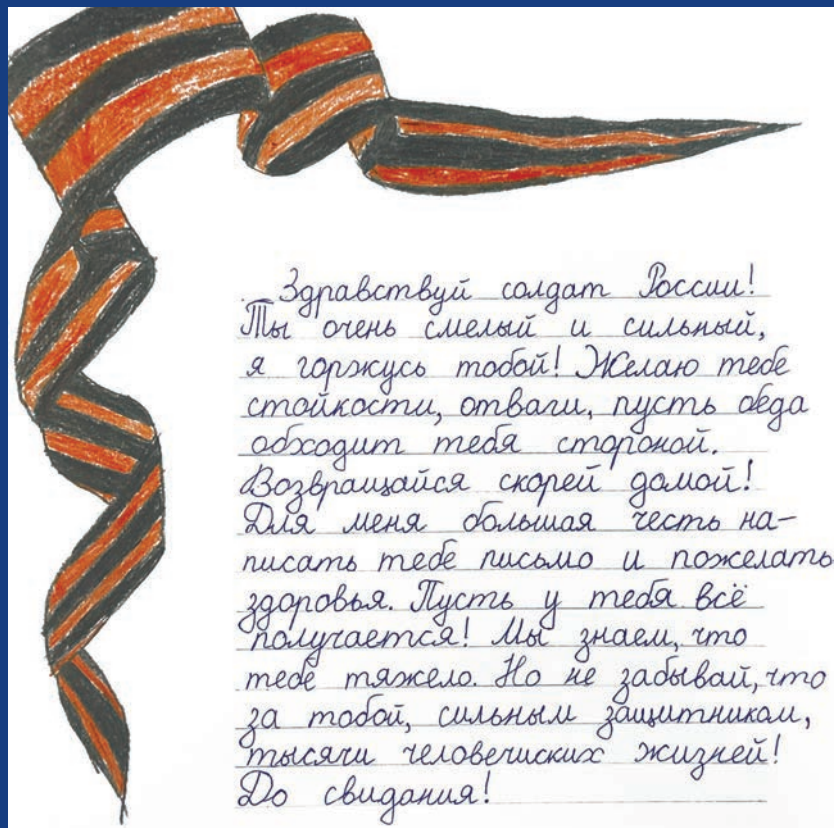 Здравствуй солдат России!
Ты очень смелый и сильный,
я горжусь тобой! Желаю тебе
стойкости, отваги, пусть беда
обходит тебя стороной.
Возвращайся скорей домой!
Для меня большая честь на-
писать тебе письмо и пожелать
здоровья. Пусть у тебя всё
получается! Мы знаем, что
тебе тяжело. Но не забывай, что
за тобой, сильным защитником,
тысячи человечиских жизней!
До свидания!